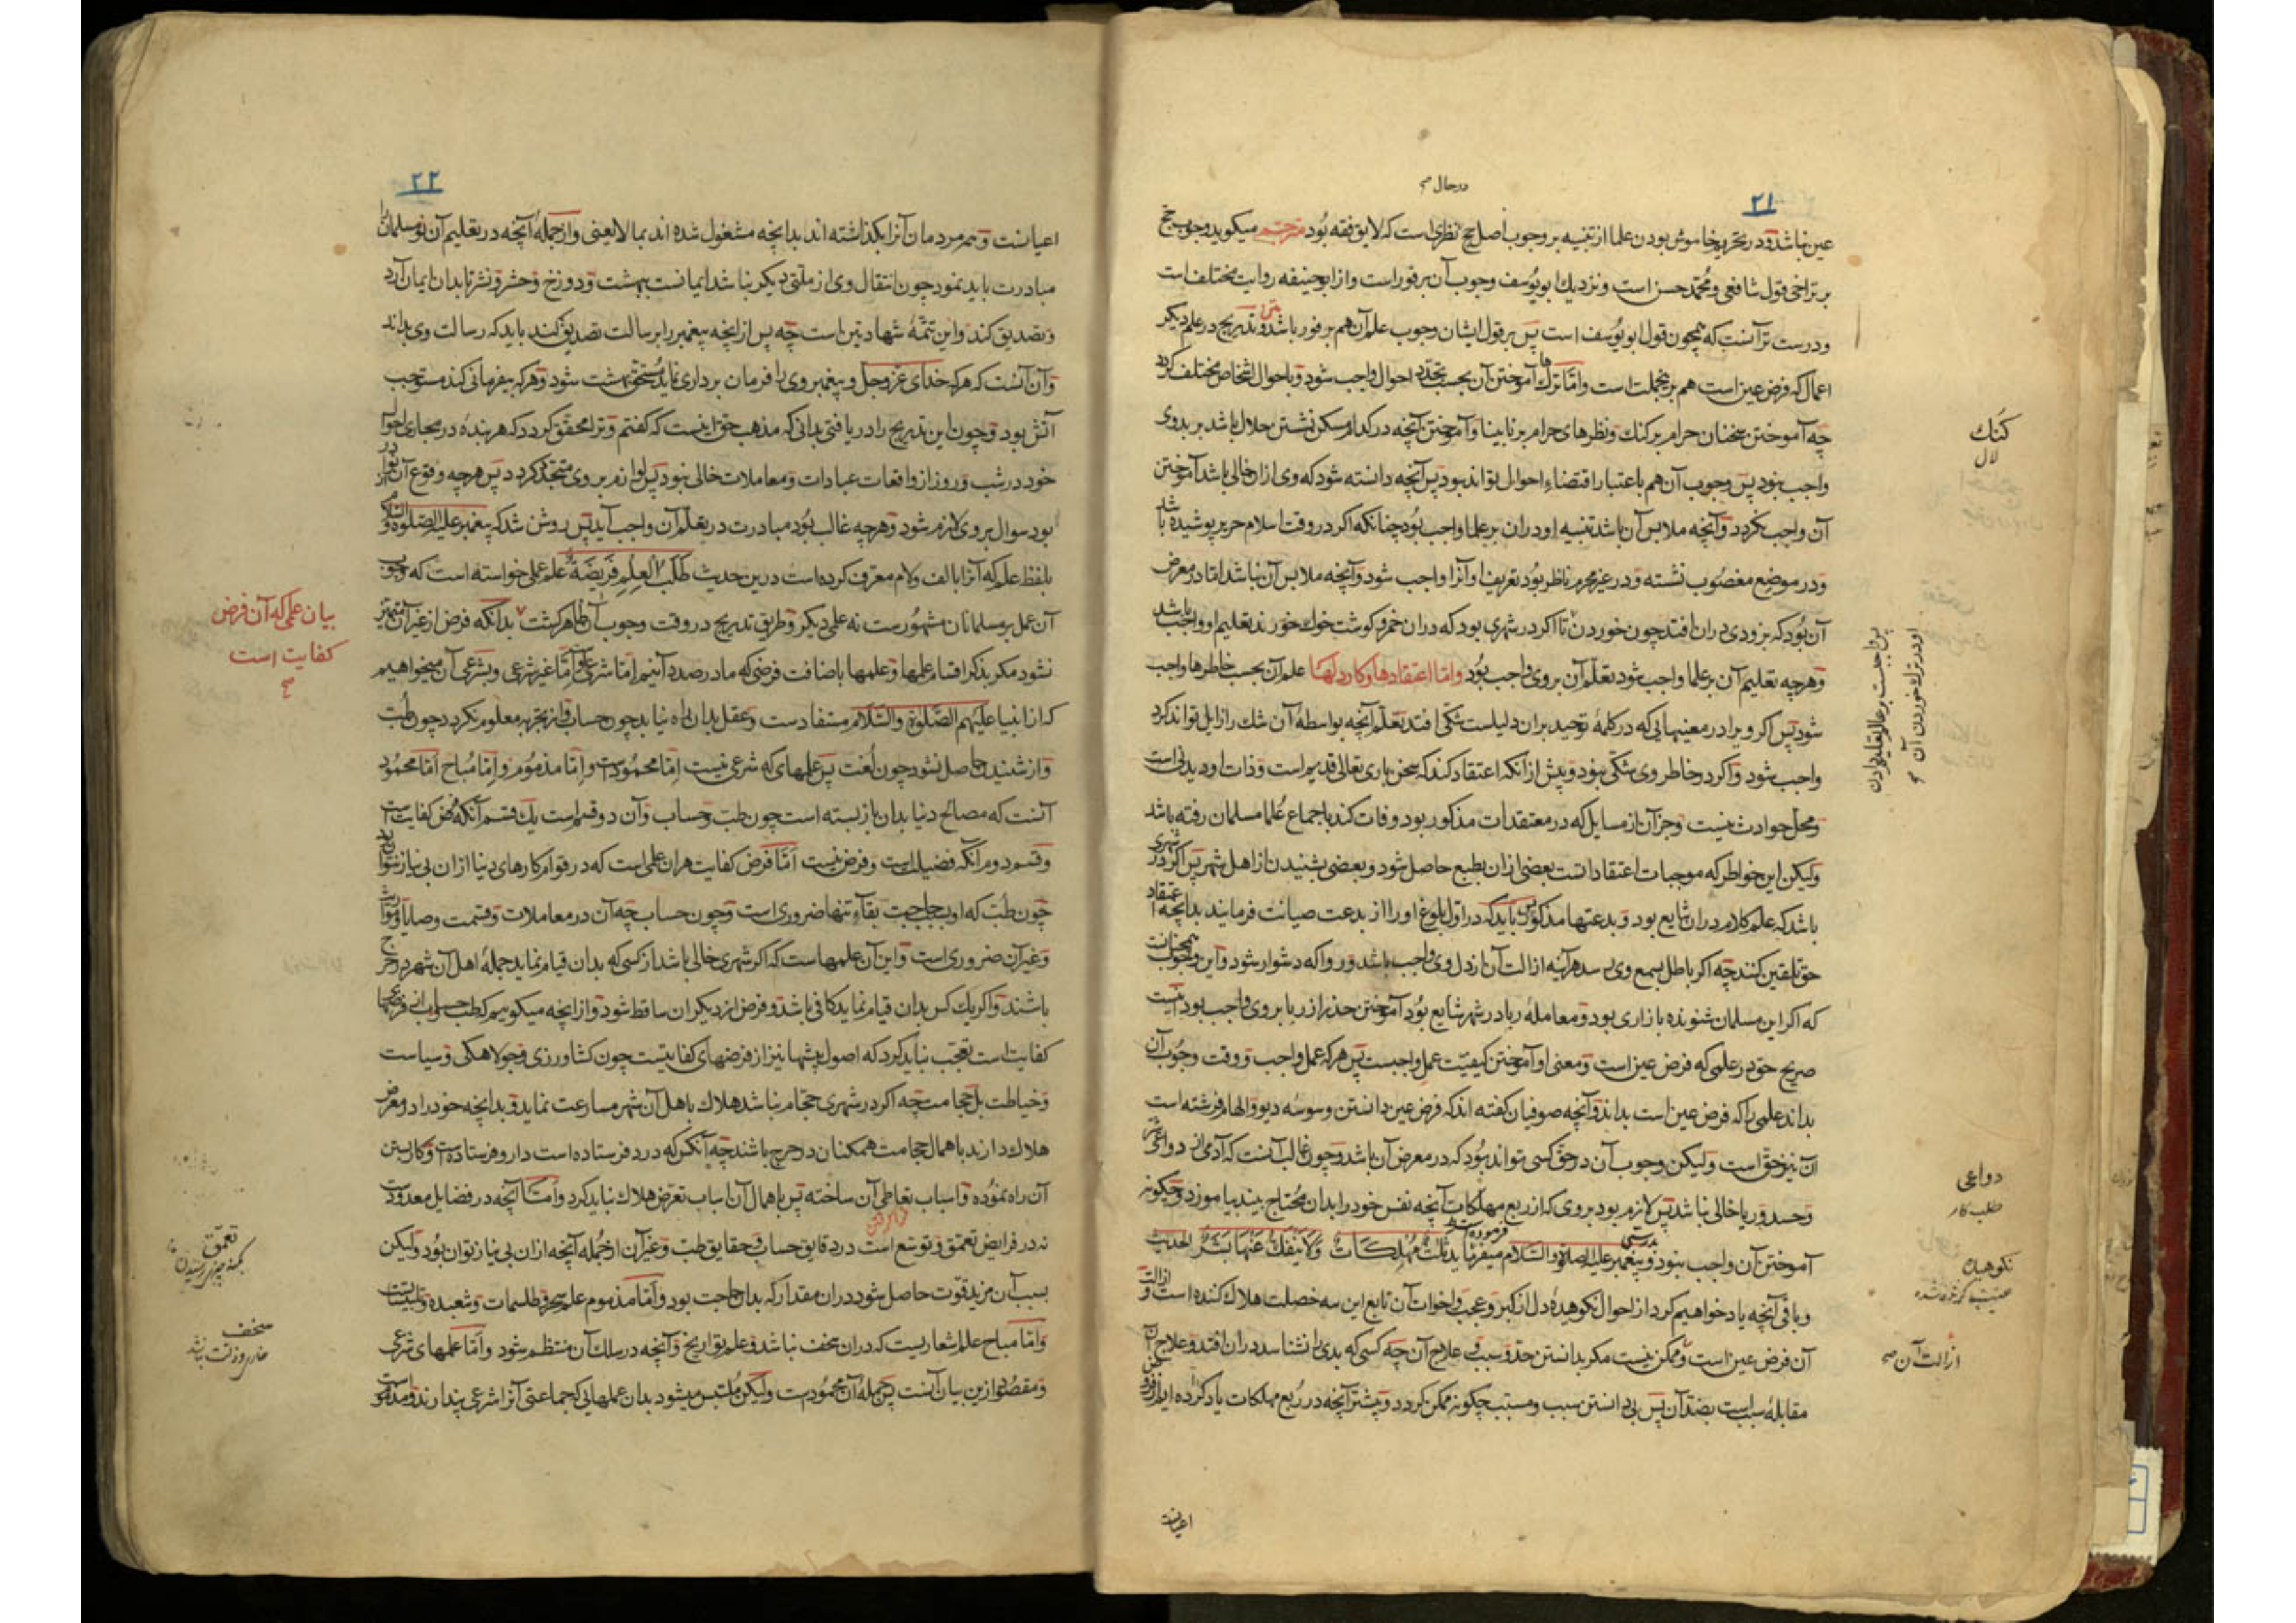 ۲۱
در حال صح
عین نباشد و در تحریم خاموش بودن علما از تنبیه بر وجوب اصل حج نظری است که لایق فقه بود مترجم میگوید وجوب حج
بر تراخی قول شافعی و محمد حسن است و نزدیك ابو یوسف وجوب آن بر فور است و از ابو حنیفه روایت مختلف است
و درست تر آنست که همچون قول ابو یوسف است پس بر قول ایشان وجوب علم آن هم بر فور باشد و تدریج در علم دیکر
اعمال که فرض عین است هم برین جملت است واما ترکها آموختن آن بحسب تجدد احوال واجب شود و باحوال اشخاص مختلف کردد
چه آموختن سخنان حرام بر کنك و نظرهای حرام بر نابینا و آموختن آنچه در کدام مسکن نشستن حلال باشد بر بدوی
واجب نبود پس وجوب آن هم باعتبار اقتضاء احوال تواند بود پس آنچه دانسته شود که وی ازان خالی باشد آموختن
آن واجب نکردد و آنچه ملابس آن باشد تنبیه او دران بر علما واجب بود چنانکه اکر در وقت اسلام حریر پوشیده باشد
و در موضع مغصوب نشسته و در غیر محرم ناظر بود تعریف او آنرا واجب شود و آنچه ملابس آن نباشد اما در معرض
آن بود که بزودی دران افتد چون خوردن تا اکر در شهری بود که دران خمر و کوشت خوك خورند تعلیم او واجب باشد
و هرچه تعلیم آن بر علما واجب شود تعلم آن بر وی واجب بود واما اعتقادها و کار دلها علم آن بحسب خاطرها واجب
شود پس اکر ویرا در معنیهایی که در کلمهٔ توحید بران دلیلست شکی افتد تعلم آنچه بواسطهٔ آن شك را زایل تواند کرد
واجب شود و اکر در خاطر وی شکی نبود و پیش از آنکه اعتقاد کند که سخن باری تعالی قدیم است و ذات او دیدنی است
و محل حوادث نیست و جز آن از مسایل که در معتقدات مذکور بود وفات کند باجماع علما مسلمان رفته باشد
ولیکن این خواطر که موجبات اعتقادات است بعضی ازان بطبع حاصل شود و بعضی بشنیدن از اهل شهر پس اکر در شهری
باشد که علم کلام دران شایع بود و بدعتها مذکور پس باید که در اول بلوغ او را از بدعت صیانت فرمایند بدانچه اعتقاد
حق تلقین کنند چه اکر باطل بسمع وی رسد هرآینه ازالت آن از دل وی واجب باشد و روا که دشوار شود و این وجوب همچنانست
که اکر این مسلمان شنونده بازاری بود و معامله ربا در شهر شایع بود آموختن حذر از ربا بر وی واجب بود اینست
صریح حق در علمی که فرض عین است و معنی او آموختن کیفیت عمل واجبست پس هر که عمل واجب و وقت وجوب آن
بداند علمی را که فرض عین است بداند و آنچه صوفیان کفته اند که فرض عین دانستن وسوسه دیو و الهام فرشته است
آن نیز حق است ولیکن وجوب آن در حق کسی تواند بود که در معرض آن باشد و چون غالب آنست که آدمی از دواعی شر
و حسد و ریا خالی نباشد پس لازم بود بر وی که از ربع مهلکات آنچه نفس خود را بدان محتاج بیند بیاموزد و چکونه
آموختن آن واجب نبود و پیغمبر علیه الصلوة والسلام میفرماید ثلث مهلکات ولا ینفك عنها بشر الحدیث
و باقی آنچه یاد خواهیم کرد از احوال نکوهیدهٔ دل از کبر و عجب و اخوات آن تابع این سه خصلت هلاك کننده است و ازالت
آن فرض عین است و ممکن نیست مکر بدانستن حد و سبب و علاج آن چه کسی که بدی را نشناسد دران افتد و علاج آن
مقابلهٔ سبب است بضد آن پس بی دانستن سبب و مسبب چکونه ممکن کردد و بیشتر آنچه در ربع مهلکات یاد کرده ایم از فروض
کنك
لال
دواعی
طلب کار
نکوهیده
ازالت آن صح
اعیانست
۲۲
اعیانست و همه مردمان آنرا بکذاشته اند بدانچه مشغول شده اند بما لا یعنی و از جملهٔ آنچه در تعلیم آن نو مسلمان را
مبادرت باید نمود چون انتقال وی از ملتی دیکر نباشد ایمانست ببهشت و دوزخ و حشر و نشر تا بدان ایمان آرد
و تصدیق کند و این تتمهٔ شهادتین است چه پس از انچه پیغمبر را برسالت تصدیق کند باید که رسالت وی بداند
و آن آنست که هر که خدای عز وجل و پیغمبر وی را فرمان برداری نماید مستحق بهشت شود و هر که بیفرمانی کند مستوجب
آتش بود و چون این تدریج را دریافتی بدانی که مذهب حق اینست که کفتم و ترا محقق کردد که هر بنده در مجاری احوال
خود در شب و روز از واقعات عبادات و معاملات خالی نبود پس لوازم بر وی متجدد کردد پس هرچه وقوع آن نوادر
بود سوال بر وی لازم شود و هرچه غالب بود مبادرت در تعلم آن واجب آید پس روشن شد که پیغمبر علیه الصلوة والسلام
بلفظ علم که آنرا بالف ولام معرف کرده است درین حدیث طلب العلم فریضة علم عملی خواسته است که وجوب
آن عمل بر مسلمانان مشهورست نه علمی دیکر و طریق تدریج در وقت وجوب آن ظاهر کشت بدانکه فرض از غیر آن متمیز
نشود مکر بذکر اقسام علمها و علمها باضافت فرضی که ما در صدد آنیم اما شرعی و اما غیر شرعی و بشرعی آن میخواهیم
که از انبیا علیهم الصلوة والسلام مستفادست و عقل بدان راه نیابد چون حساب و از تجربه معلوم نکردد چون طب
و از شنیدن حاصل نشود چون لغت پس علمهای که شرعی نیست اما محمودست و اما مذموم و اما مباح اما محمود
آنست که مصالح دنیا بدان باز بسته است چون طب و حساب و آن دو قسم است یك قسم آنکه فرض کفایت است
و قسم دوم آنکه فضیلت است و فرض نیست اما فرض کفایت هران علمی است که در قوام کارهای دنیا ازان بی نیاز نتوان بود
چون طب که او بحاجت بقآء تنها ضروری است و چون حساب چه آن در معاملات و قسمت وصایا و مواریث
و غیر آن ضروری است و این آن علمهاست که اکر شهری خالی باشد از کسی که بدان قیام نماید جملهٔ اهل آن شهر در حرج
باشند و اکر یك کس بدان قیام نماید کافی باشد و فرض از دیکران ساقط شود و از انچه میکوییم که طب و حساب از فرضهای
کفایت است تعجب نباید کرد که اصول پیشها نیز از فرضهای کفایتست چون کشاورزی و جولاهکی و سیاست
و خیاطت بل حجامت چه اکر در شهری حجام نباشد هلاك باهل آن شهر مسارعت نماید و بدانچه خود را در معرض
هلاك دارند باهمال حجامت همکنان در حرج باشند چه آنکس که درد فرستاده است دارو فرستادست و کار بستن
آن راه نموده و اسباب تعاطی آن ساخته پس باهمال آن اسباب تعرض هلاك نباید کرد و اما آنچه در فضایل معدودست
نه در فرایض تعمق و توسع است در دقایق حساب و حقایق طب و غیر آن از جمله آنچه ازان بی نیاز توان بود ولیکن
بسبب آن مزید قوت حاصل شود دران مقدار که بدان حاجت بود و اما مذموم علم سحر و طلسمات و شعبده و تلبیسات است
و اما مباح علم اشعاریست که دران سخف نباشد و علم تواریخ و آنچه در سلك آن منتظم شود و اما علمهای شرعی
و مقصود ازین بیان آنست پس جملهٔ آن محمودست ولیکن ملتبس میشود بدان علمهایی که جماعتی آنرا شرعی پندارند و مذموم است
بیان علمی که آن فرض
کفایت است
صح
تعمق
سخف